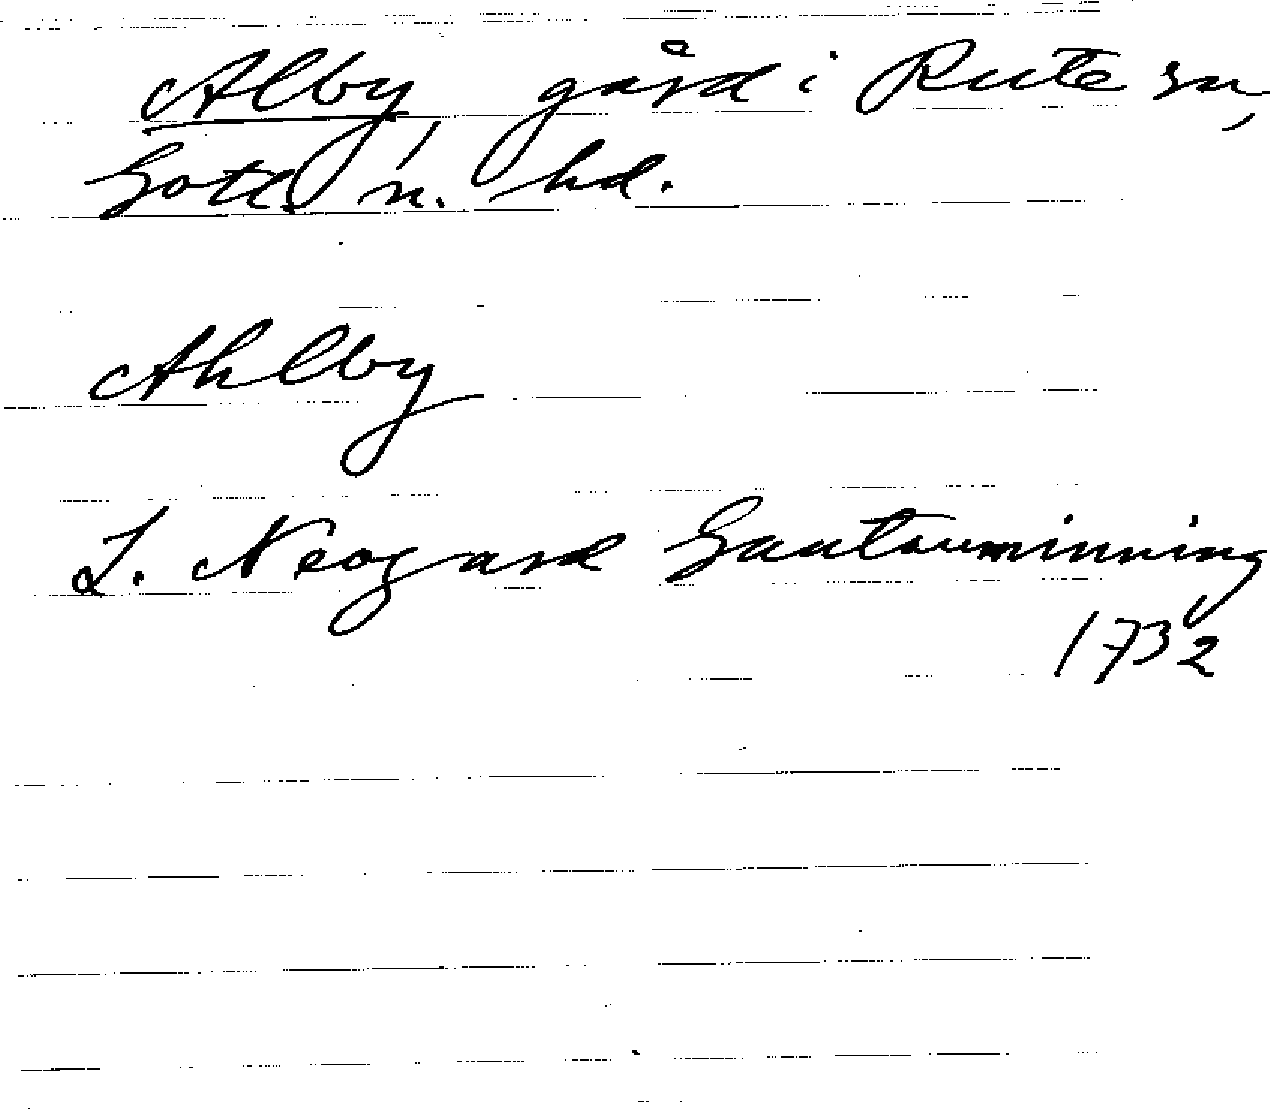 Alby, gård i Rute sn,
Gotl. n. hd.
Ahlby
L. Neogard Gautauminning
1732